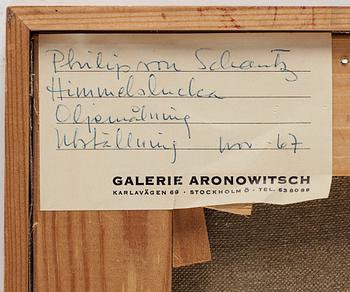 Philip von Schantz
Himmelslucka
Oljemålning
Utställning nov -67
GALERIE ARONOWITSCH
KARLAVÄGEN 69 · STOCKHOLM Ö · TEL. 63 80 89